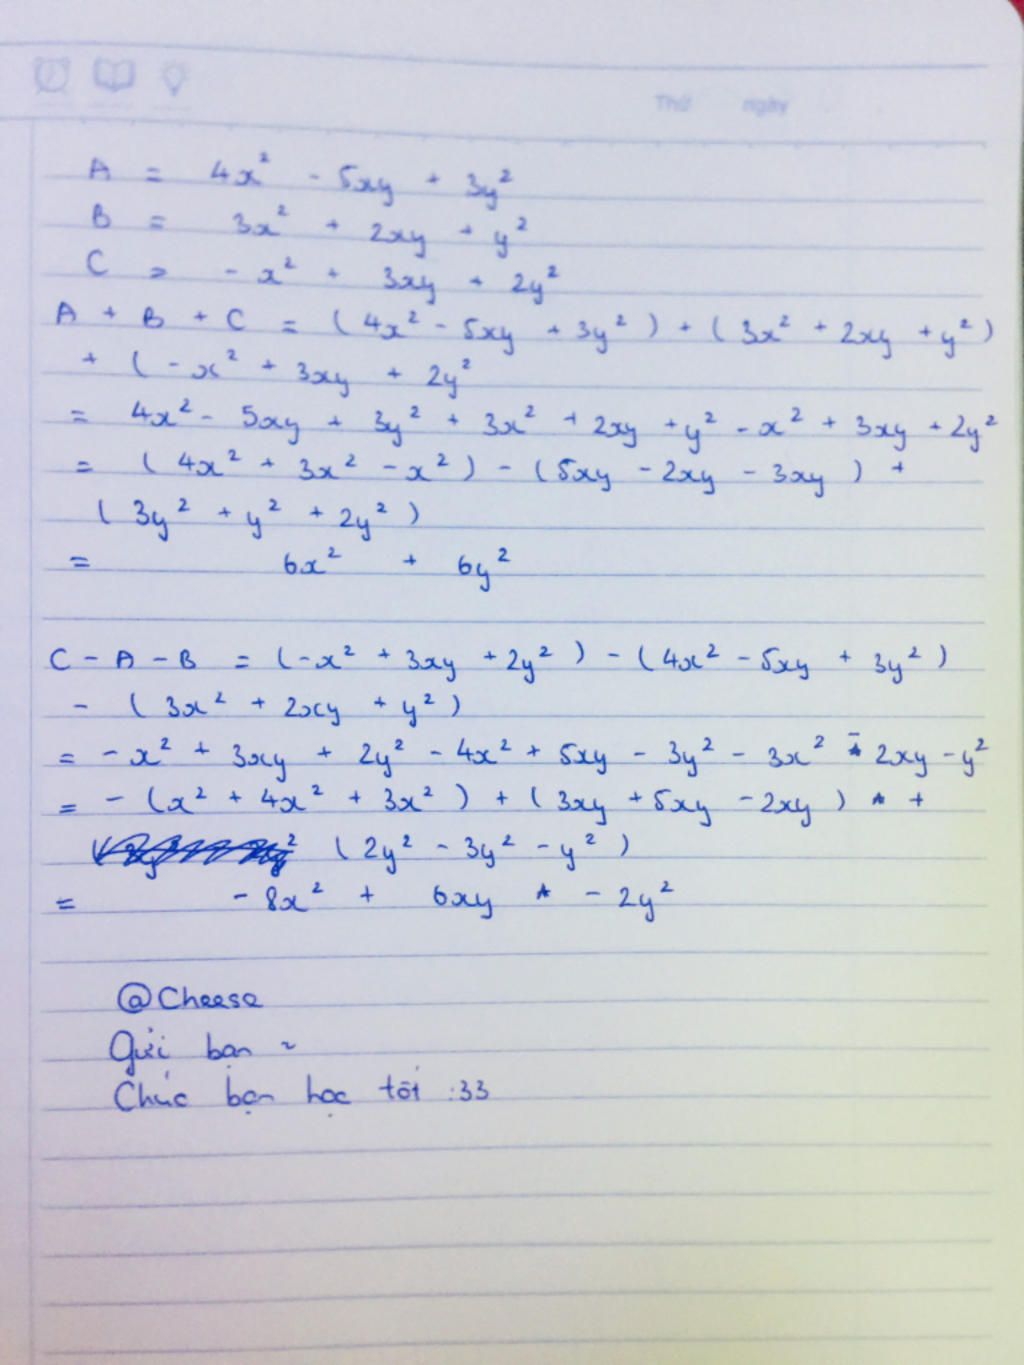 Thứ ngày
A = 4x² - 5xy + 3y²
B = 3x² + 2xy + y²
C = - x² + 3xy + 2y²
A + B + C = ( 4x² - 5xy + 3y² ) + ( 3x² + 2xy + y² )
+ ( - x² + 3xy + 2y²
= 4x² - 5xy + 3y² + 3x² + 2xy + y² - x² + 3xy + 2y²
= ( 4x² + 3x² - x² ) - ( 5xy - 2xy - 3xy ) +
( 3y² + y² + 2y² )
= 6x² + 6y²
C - A - B = ( -x² + 3xy + 2y² ) - ( 4x² - 5xy + 3y² )
- ( 3x² + 2xy + y² )
= - x² + 3xy + 2y² - 4x² + 5xy - 3y² - 3x² - 2xy - y²
= - ( x² + 4x² + 3x² ) + ( 3xy + 5xy - 2xy ) +
( 2y² - 3y² - y² )
= - 8x² + 6xy - 2y²
@Cheese
Gửi bạn ~
Chúc bạn học tốt :33